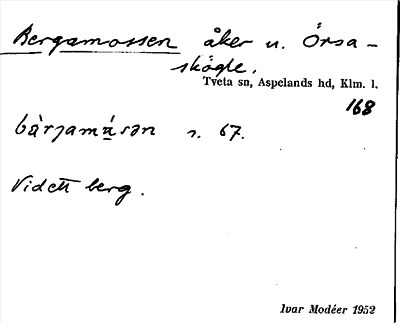 Bergamossen åker u. Örsa-
skögle.
Tveta sn, Aspelands hd, Klm. l.
168
bàrjamásən s. 67.
Vid ett berg.
Ivar Modéer 1952